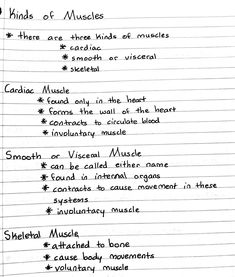 Kinds of Muscles
* there are three kinds of muscles
* cardiac
* smooth or visceral
* skeletal
Cardiac Muscle
* found only in the heart
* forms the wall of the heart
* contracts to circulate blood
* involuntary muscle
Smooth or Visceral Muscle
* can be called either name
* found in internal organs
* contracts to cause movement in these
systems
* involuntary muscle
Skeletal Muscle
* attached to bone
* cause body movements
* voluntary muscle